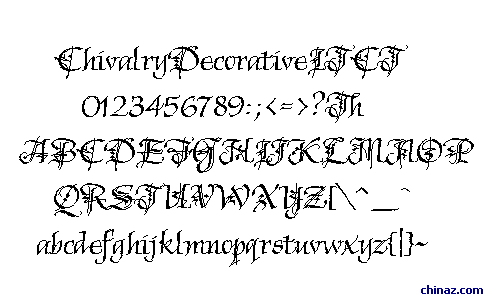 ChivalryDecorativeLTCT
0123456789:;<=>?Th
ABCDEFGHIJKLMNOP
QRSTUVWXYZ[\^_`
abcdefghijklmnopqrstuvwxyz{|}~
chinaz.com